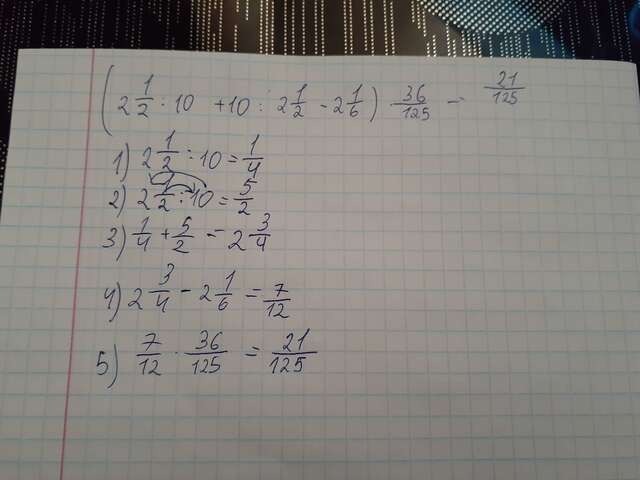 (2 1/2 : 10 + 10 : 2 1/2 - 2 1/6) · 36/125 = 21/125
1) 2 1/2 : 10 = 1/4
2) 2 1/2 : 10 = 5/2
3) 1/4 + 5/2 = 2 3/4
4) 2 3/4 - 2 1/6 = 7/12
5) 7/12 · 36/125 = 21/125